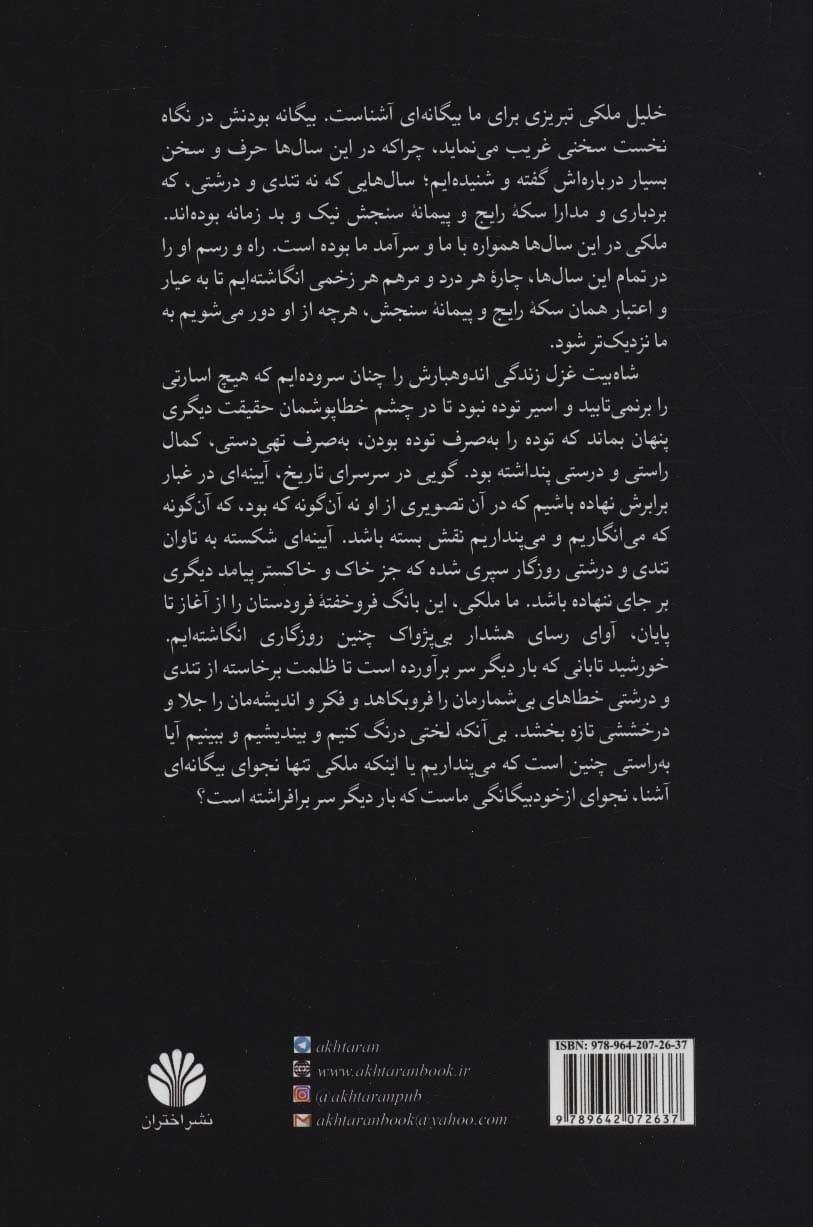 خلیل ملکی تبریزی برای ما بیگانه‌ای آشناست. بیگانه بودنش در نگاه
نخست سخنی غریب می‌نماید، چراکه در این سال‌ها حرف و سخن
بسیار درباره‌اش گفته و شنیده‌ایم؛ سال‌هایی که نه تندی و درشتی، که
بردباری و مدارا سکهٔ رایج و پیمانهٔ سنجش نیک و بد زمانه بوده‌اند.
ملکی در این سال‌ها همواره با ما و سرآمد ما بوده است. راه و رسم او را
در تمام این سال‌ها، چارهٔ هر درد و مرهم هر زخمی انگاشته‌ایم تا به عیار
و اعتبار همان سکهٔ رایج و پیمانهٔ سنجش، هرچه از او دور می‌شویم به
ما نزدیک‌تر شود.
شاه‌بیت غزل زندگی اندوهبارش را چنان سروده‌ایم که هیچ اسارتی
را برنمی‌تابید و اسیر توده نبود تا در چشم خطاپوشمان حقیقت دیگری
پنهان بماند که توده را به‌صرف توده بودن، به‌صرف تهی‌دستی، کمال
راستی و درستی پنداشته بود. گویی در سرسرای تاریخ، آیینه‌ای در غبار
برابرش نهاده باشیم که در آن تصویری از او نه آن‌گونه که بود، که آن‌گونه
که می‌انگاریم و می‌پنداریم نقش بسته باشد. آیینه‌ای شکسته به تاوان
تندی و درشتی روزگار سپری شده که جز خاک و خاکستر پیامد دیگری
بر جای ننهاده باشد. ما ملکی، این بانگ فروخفتهٔ فرودستان را از آغاز تا
پایان، آوای رسای هشدار بی‌پژواک چنین روزگاری انگاشته‌ایم.
خورشید تابانی که بار دیگر سر برآورده است تا ظلمت برخاسته از تندی
و درشتی خطاهای بی‌شمارمان را فروبکاهد و فکر و اندیشه‌مان را جلا و
درخششی تازه بخشد. بی‌آنکه لختی درنگ کنیم و بیندیشیم و ببینیم آیا
به‌راستی چنین است که می‌پنداریم یا اینکه ملکی تنها نجوای بیگانه‌ای
آشنا، نجوای ازخودبیگانگی ماست که بار دیگر سر برافراشته است؟
akhtaran
www.akhtaranbook.ir
@akhtaranpub
akhtaranbook@yahoo.com
نشر اختران
ISBN: 978-964-207-26-37
9 789642 072637